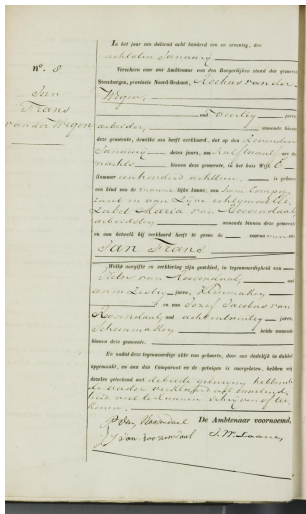 nº. 8
Jan
Frans
van der Wegen
In het jaar een duizend acht honderd een en zeventig, den
achtsten Januarij
Verscheen voor ons Ambtenaar van den Burgerlijken stand der gemeente
Steenbergen, provincie Noord-Braband, Rochus van der
Wegen,
oud veertig jaren,
arbeider, wonende binnen
deze gemeente, dewelke ons heeft verklaard, dat op den zevenden
Januarij dezes jaars, om half twaalf ure des
nachts binnen deze gemeente, in het huis Wijk
Nummer eenhonderd achttien, is geboren
een kind van de mannelijke kunne, van hem Compa-
rant en aan zijne echtgenoote Eli-
zabet Maria van Roosendaal,
arbeidster wonende binnen deze gemeente
en aan hetwelk hij verklaard heeft te geven de voornamen van
Jan Frans
Welke aangifte en verklaring zijn geschied, in tegenwoordigheid van
Pieter van Roosendaal, oud
een en zestig jaren, Kleermaker
en van Jozef Jacobus van
Roosendaal, oud acht en twintig jaren,
Schoenmaker, beide wonende
binnen deze gemeente.
En nadat deze tegenwoordige akte van geboorte, door ons dadelijk in dubbel
opgemaakt, en aan den Comparant en de getuigen is voorgelezen, hebben wij
dezelve geteekend met de beide getuigen hebbende
de vader verklaard uit onkunde
niet te kunnen schrijven of tee-
kenen.
De Ambtenaar voornoemd,
P van Roosendaal
J J van roosendaal
J. W. Laane